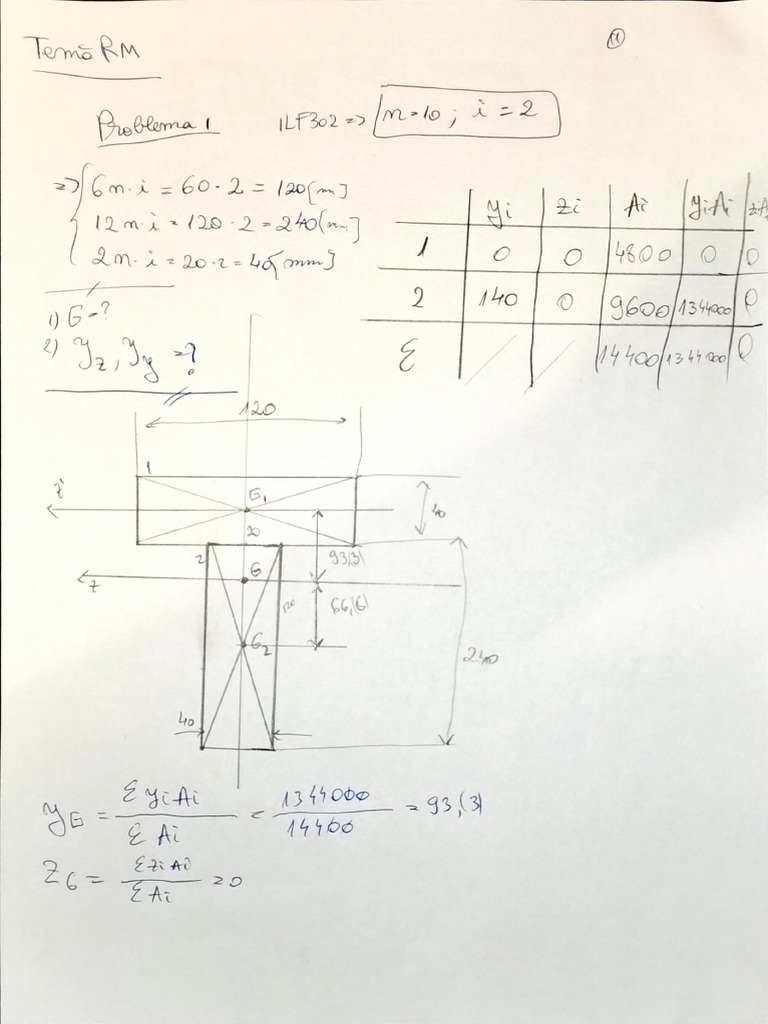 Temă RM
11
Problema 1 1LF302 => n=10 ; i = 2
=> 6n·i = 60·2 = 120[mm]
12n·i = 120·2 = 240[mm]
2n·i = 20·2 = 40[mm]
yi zi Ai yiAi ziAi
1 0 0 4800 0 0
2 140 0 9600 1344000 0
Σ 14400 1344000 0
1) G=?
2) Iz, Iy =?
120
1
z'
G1
40
20
2
93,(3)
G
z
120
66,(6)
G2
240
40
yG = Σ yiAi / Σ Ai = 1344000 / 14400 = 93,(3)
ZG = ΣziAi / ΣAi = 0